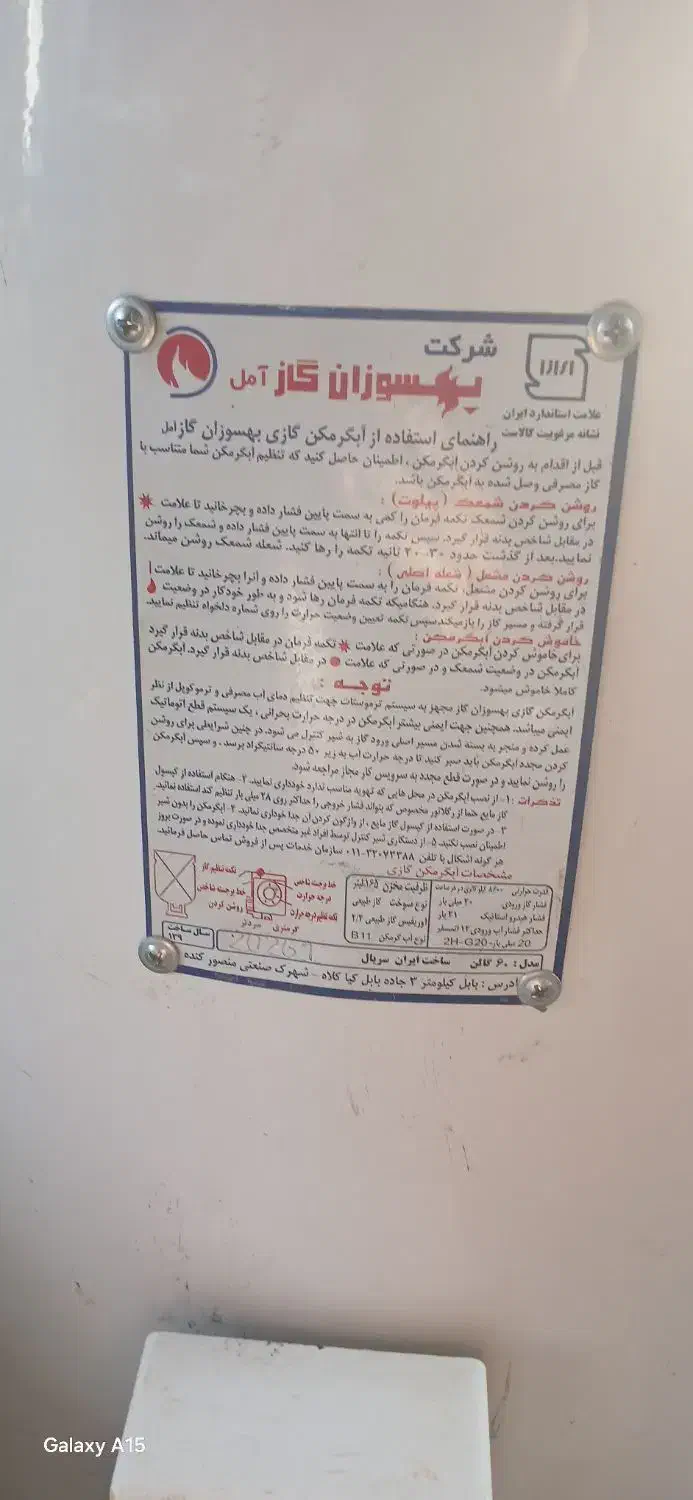 شرکت
بهسوزان گاز آمل
علامت استاندارد ایران
نشانه مرغوبیت کالاست
راهنمای استفاده از آبگرمکن گازی بهسوزان گاز آمل
قبل از اقدام به روشن کردن آبگرمکن ، اطمینان حاصل کنید که تنظیم آبگرمکن شما متناسب با
گاز مصرفی وصل شده به آبگرمکن باشد.
روشن کردن شمعک ( پیلوت ) :
برای روشن کردن شمعک تکمه فرمان را کمی به سمت پایین فشار داده و بچرخانید تا علامت
در مقابل شاخص بدنه قرار گیرد. سپس تکمه را تا انتها به سمت پایین فشار داده و شمعک را روشن
نمایید.بعد از گذشت حدود ۳۰-۲۰ ثانیه تکمه را رها کنید. شعله شمعک روشن میماند.
روشن کردن مشعل ( شعله اصلی ) :
برای روشن کردن مشعل، تکمه فرمان را به سمت پایین فشار داده و آنرا بچرخانید تا علامت
در مقابل شاخص بدنه قرار گیرد. هنگامیکه تکمه فرمان رها شود و به طور خودکار در وضعیت
قرار گرفته و مسیر گاز را بازمیکند سپس تکمه تعیین وضعیت حرارت را روی شماره دلخواه تنظیم نمایید.
خاموش کردن آبگرمکن :
برای خاموش کردن آبگرمکن در صورتی که علامت تکمه فرمان در مقابل شاخص بدنه قرار گیرد
آبگرمکن در وضعیت شمعک و در صورتی که علامت در مقابل شاخص بدنه قرار گیرد. آبگرمکن
کاملا خاموش میشود.
توجه :
آبگرمکن گازی بهسوزان گاز مجهز به سیستم ترموستات جهت تنظیم دمای آب مصرفی و ترموکوپل از نظر
ایمنی میباشد. همچنین جهت ایمنی بیشتر آبگرمکن در درجه حرارت بحرانی ، یک سیستم قطع اتوماتیک
عمل کرده و منجر به بسته شدن مسیر اصلی ورود گاز به شیر کنترل می شود. در چنین شرایطی برای روشن
کردن مجدد آبگرمکن باید صبر کنید تا درجه حرارت آب به زیر ۵۰ درجه سانتیگراد برسد . و سپس آبگرمکن
را روشن نمایید و در صورت قطع مجدد به سرویس کار مجاز مراجعه شود.
تذکرات : ۱- از نصب آبگرمکن در محل هایی که تهویه مناسب ندارد خودداری نمایید. ۲- هنگام استفاده از کپسول
گاز مایع حتما از رگلاتور مخصوص که بتواند فشار خروجی را حداکثر روی ۲۸ میلی بار تنظیم کند استفاده نمائید.
۳- در صورت استفاده از کپسول گاز مایع ، از واژگون کردن آن جدا خوداری نمائید. ۴- آبگرمکن را بدون شیر
اطمینان نصب نکنید. ۵- از دستکاری شیر کنترل توسط افراد غیر متخصص جدا خودداری نموده و در صورت بروز
هر گونه اشکال با تلفن ۳۲۰۷۳۳۸۸-۰۱۱ سازمان خدمات پس از فروش تماس حاصل فرمائید.
مشخصات آبگرمکن گازی
قدرت حرارتی ۸/۰۰۰ کیلو کالری در هر ساعت ظرفیت مخزن ۱۶۵ لیتر
فشار گاز ورودی ۲۰ میلی بار نوع سوخت گاز طبیعی
فشار هیدرو استاتیک ۲۱ بار اوریفیس گاز طبیعی ۲/۴
حداکثر فشار آب ورودی ۱۲ اتمسفر
2H-G20-20 میلی بار نوع آب گرمکن B11
تکمه تنظیم گاز
خط برجست شاخص
درجه حرارت
خط برجست شاخص
روشن کردن
تکمه تنظیم درجه حرارت
گرمتری سردتر
مدل : ۶۰ گالن ساخت ایران سریال
سال ساخت
۱۳۹
آدرس : بابل کیلومتر ۳ جاده بابل کیا کلاه - شهرک صنعتی منصور کنده
Galaxy A15